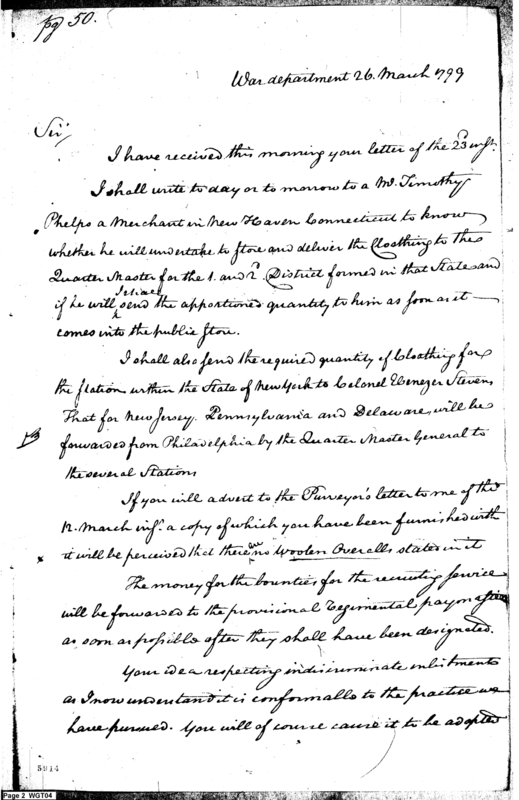 pg 50.
War department 26. March 1799
Sir,
I have received this morning your letter of the 23d inst.
I shall write to day or to morrow to a Mr. Timothy
Phelps a Merchant in New Haven Connecticut to know
whether he will undertake to store and deliver the Cloathing to the
Quarter Master for the 1. and 2d. District formed in that State and
if he will I shall send the apportioned quantity to him as soon as it
comes into the public store.
I shall also send the required quantity of Cloathing for
the station within the State of New York to Colonel Ebenezer Stevens
That for New Jersey. Pennsylvania and Delaware, will be
forwarded from Philadelphia by the Quarter Master General to
the several Stations
If you will advert to the Purveyor's letter to me of the
12. March inst. a copy of which you have been furnished with
it will be perceived that there are no Woolen Overalls stated in it
The money for the bounties for the recruiting service
will be forwarded to the provisional Regimental pay
as soon as possible after they shall have been designated.
Your idea respecting indiscriminate enlistments
as I now understand it is conformable to the practice we
have pursued. You will of course cause it to be adopted
5914
Page 2 WGT04